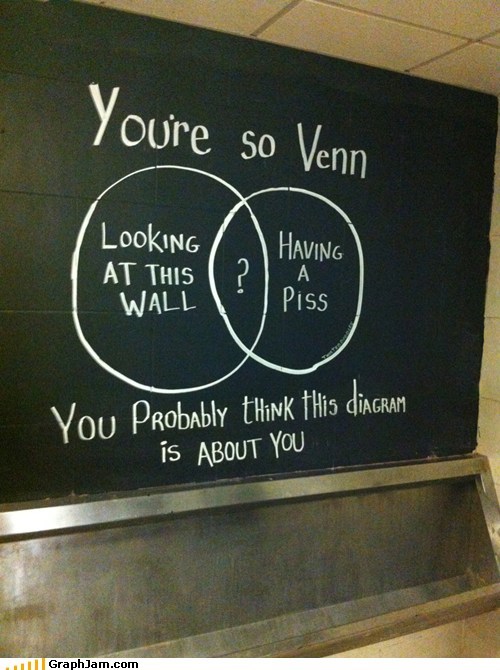 You're so Venn
LOOKING
AT THIS
WALL
?
HAVING
A
PISS
YOU PROBABLY THINK THIS DIAGRAM
is ABOUT YOU
GraphJam.com